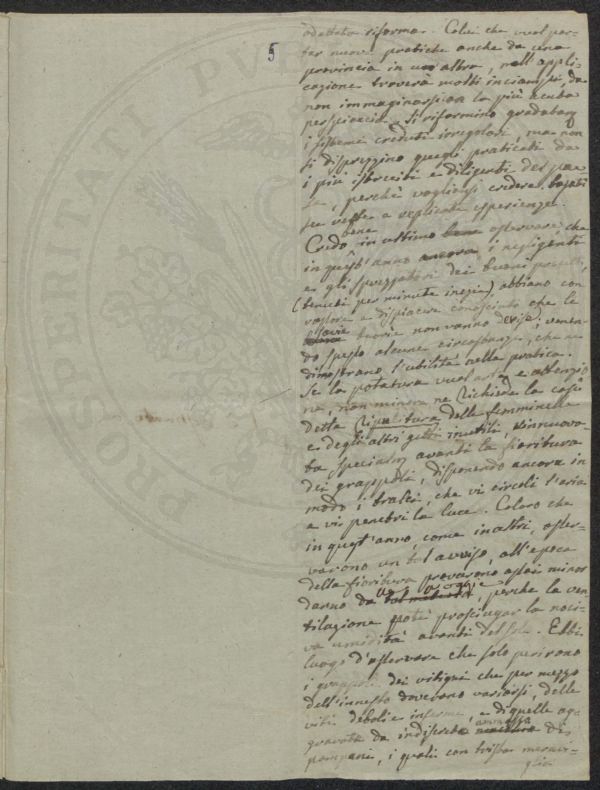 5
adattata riforma. Colui che vuol por-
tar nuove pratiche anche da una
provincia in un altra, nell'appli-
cazione troverà molti inciampi, da
non immaginarsi la più acuta
perspicacia. Si riformino gradatam
i sistemi creduti irregolari, ma non
si disprezzino quegli praticati da
i più istruiti e diligenti del pae
se, perchè vogliansi credere basati
su vaste e replicate esperienze.
bene
Credo in ultimo osservare che
in quest'anno ancora i negligenti
e gli sprezzatori dei buoni precetti,
(tenuti per minute inezie) abbiano con
rossore e dispiacere conosciuto che le
savie teorie non vanno derise; venen-
do spesso alcune circostanze, che ne
dimostrano l'utilità nella pratica.
Se la potatura vuol arte e attenzio
ne, non minore ne richiede la così
detta Ripulitura delle femminelle
e degli altri getti inutili, rinnuova-
ta specialm avanti la fioritura
dei grappoli, disponendo ancora in
modo i tralci, che vi circoli l'aria
e vi penetri la luce. Coloro che
in quest'anno, come in altri, osser-
varono un tal avviso, all'epoca
della fioritura provarono assai minor
danno da perchè la ven-
tilazione potè prosciugar la noci-
va umidità avanti del Sole. Ebbi
luogo d'osservare che solo perirono
i grappoli dei vitigni che per mezzo
dell'innesto dovevano variarsi, delle
viti deboli e inferme, e di quelle ag
ammassa
gravate da indiscreta di
pampani, i quali con trista meravi-
glia